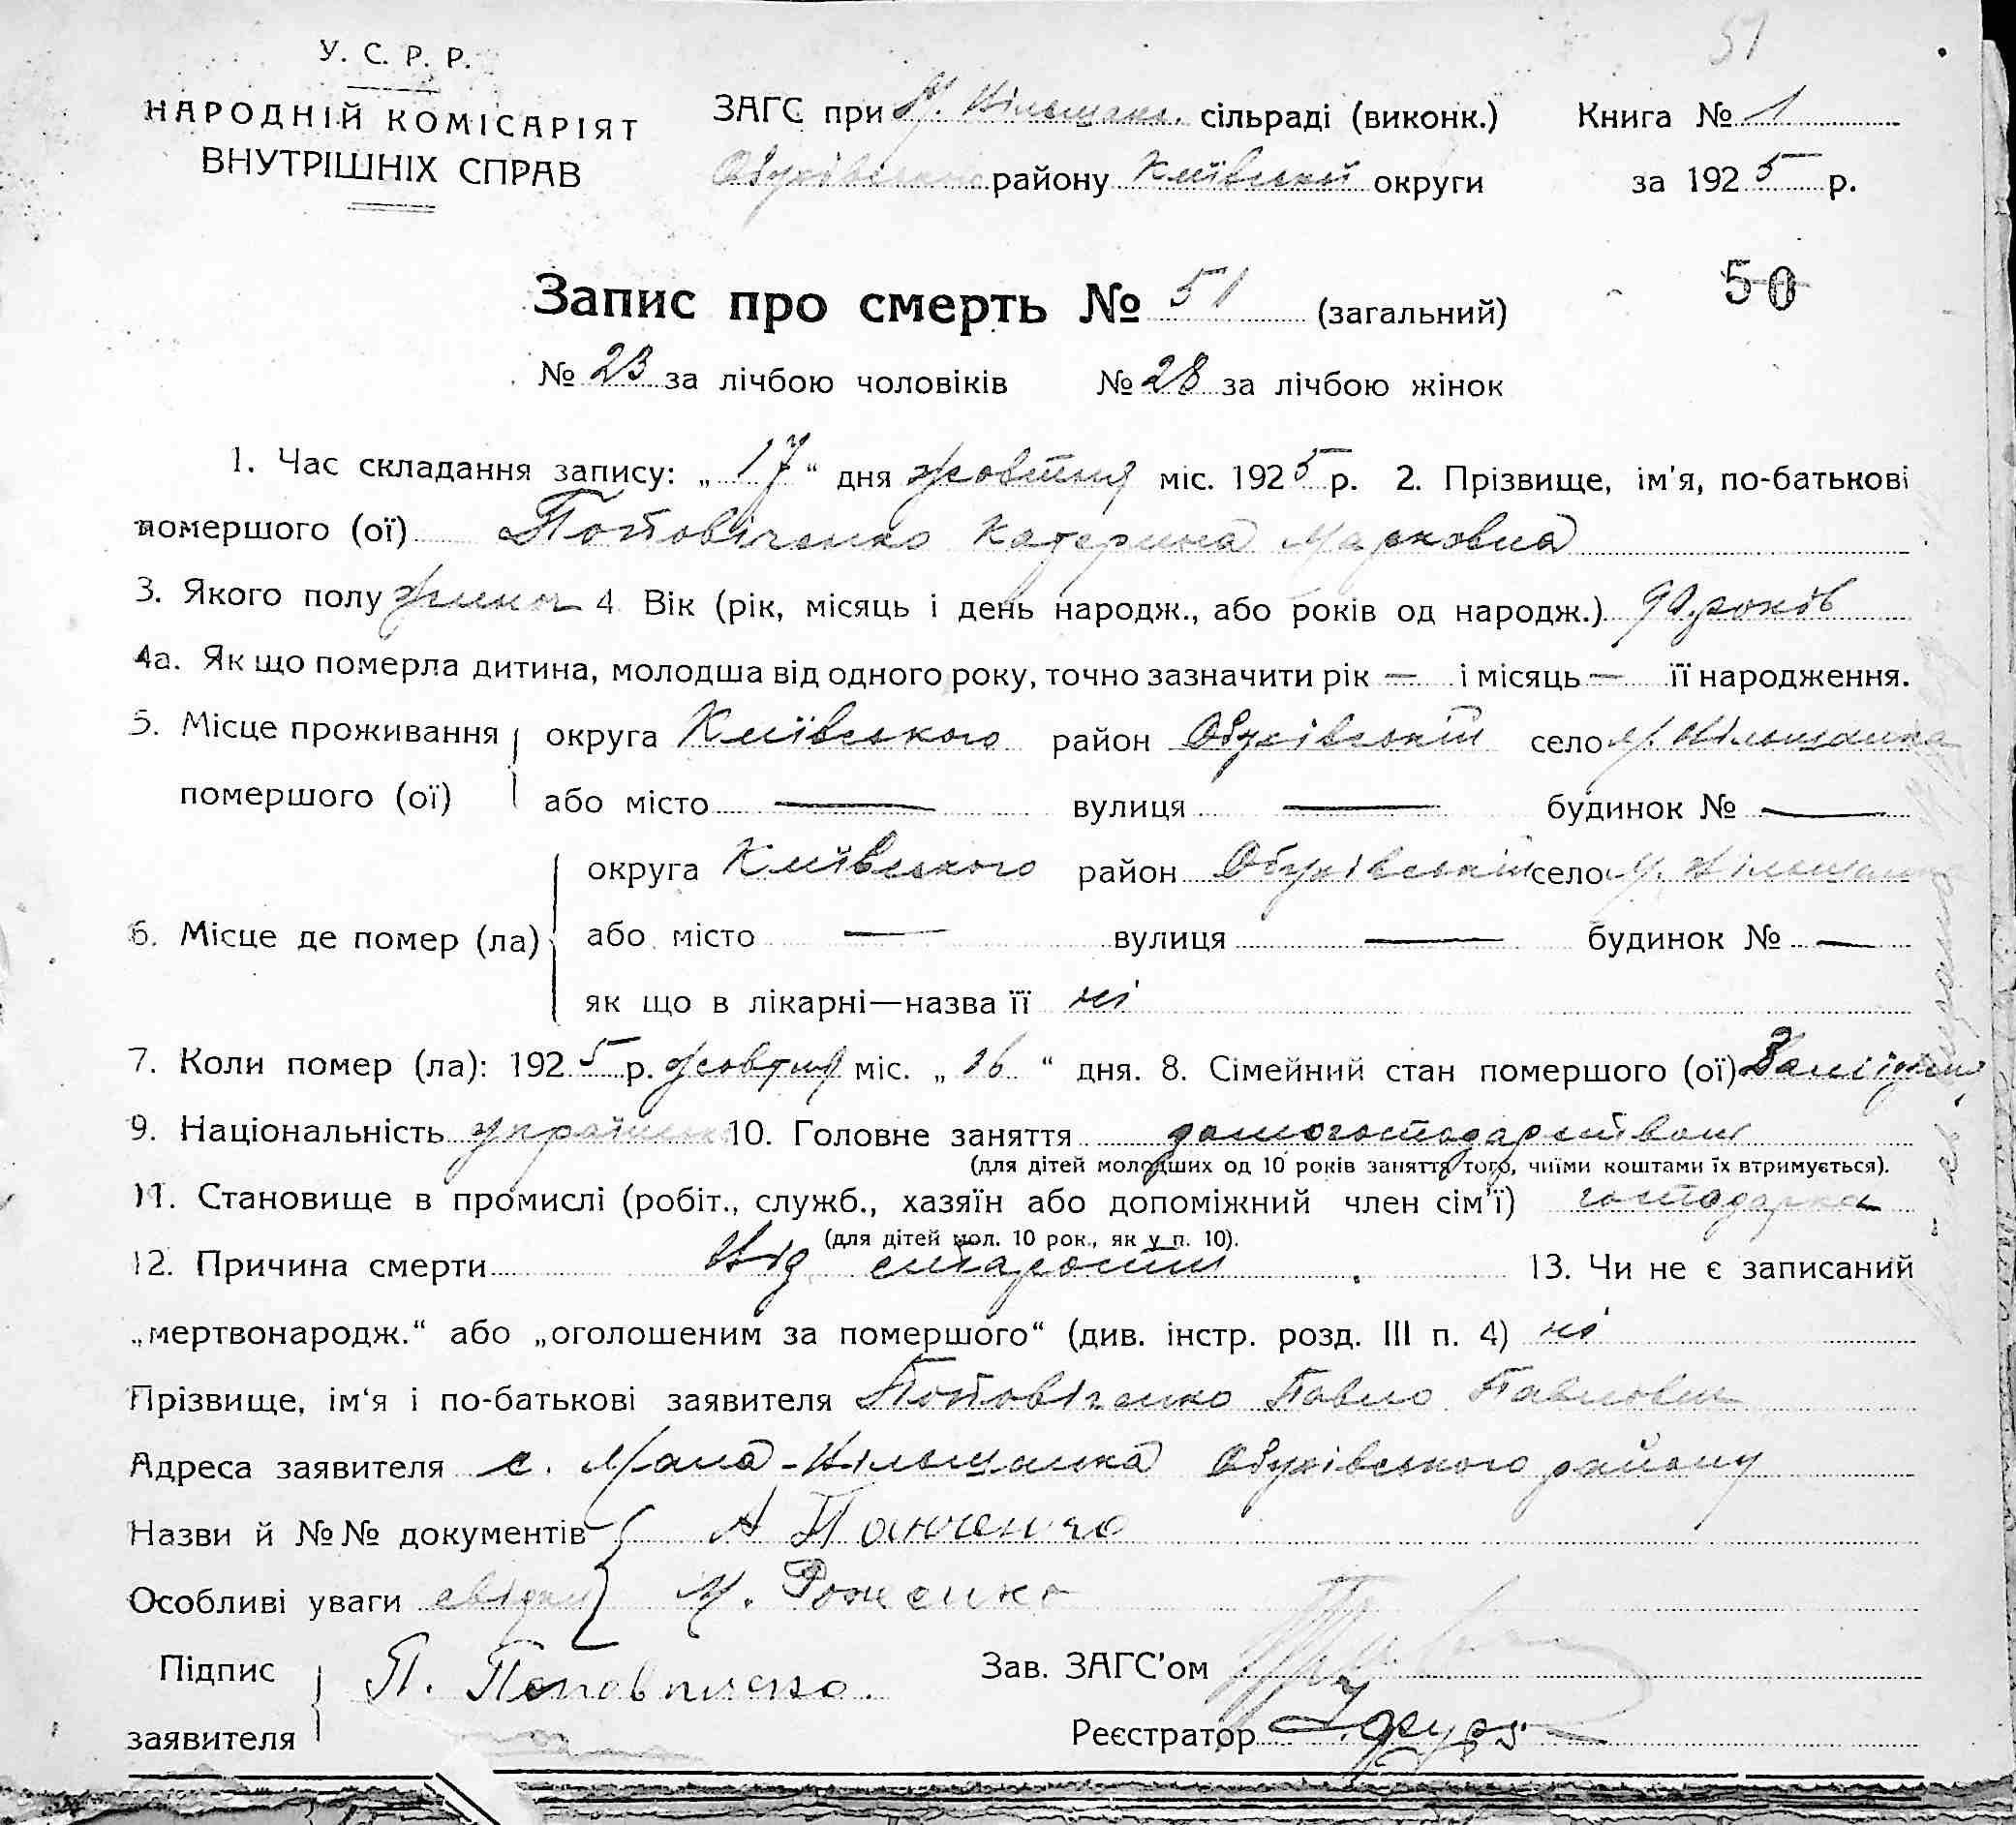 51
У. С. Р. Р.
НАРОДНІЙ КОМІСАРІЯТ
ВНУТРІШНІХ СПРАВ
ЗАГС при М. Вільщанс. сільраді (виконк.) Книга № 1
Обухівського району Київської округи за 1925 р.
50
Запис про смерть № 51 (загальний)
№ 23 за лічбою чоловіків № 28 за лічбою жінок
1. Час складання запису: „17“ дня жовтня міс. 1925 р. 2. Прізвище, ім'я, по-батькові
помершого (ої) Поповіченко Катерина Марковна
3. Якого полу 4 Вік (рік, місяць і день народж., або років од народж.) 90 років
4а. Як що померла дитина, молодша від одного року, точно зазначити рік — і місяць — її народження.
5. Місце проживання округа Київського район Обухівський село М. Вільщанка
помершого (ої) або місто — вулиця — будинок № —
округа Київського район Обухівський село М. Вільщанка
6. Місце де помер (ла) або місто — вулиця — будинок № —
як що в лікарні—назва її ні
7. Коли помер (ла): 1925 р. жовтня міс. „16“ дня. 8. Сімейний стан помершого (ої)
9. Національність 10. Головне заняття домогосподарством
(для дітей молодших од 10 років заняття того, чиїми коштами їх втримується).
11. Становище в промислі (робіт., служб., хазяїн або допоміжний член сім'ї) господарка
(для дітей мол. 10 рок., як у п. 10).
12. Причина смерти Від старости. 13. Чи не є записаний
„мертвонародж.“ або „оголошеним за помершого“ (див. інстр. розд. III п. 4) ні
Прізвище, ім'я і по-батькові заявителя Поповіченко Павло Павлович
Адреса заявителя с. Мала-Вільщанка Обухівського району
Назви й №№ документів А Панченко
Особливі уваги свідки М. Роженко
Підпис П. Поповиченко. Зав. ЗАГС'ом
заявителя Реєстратор